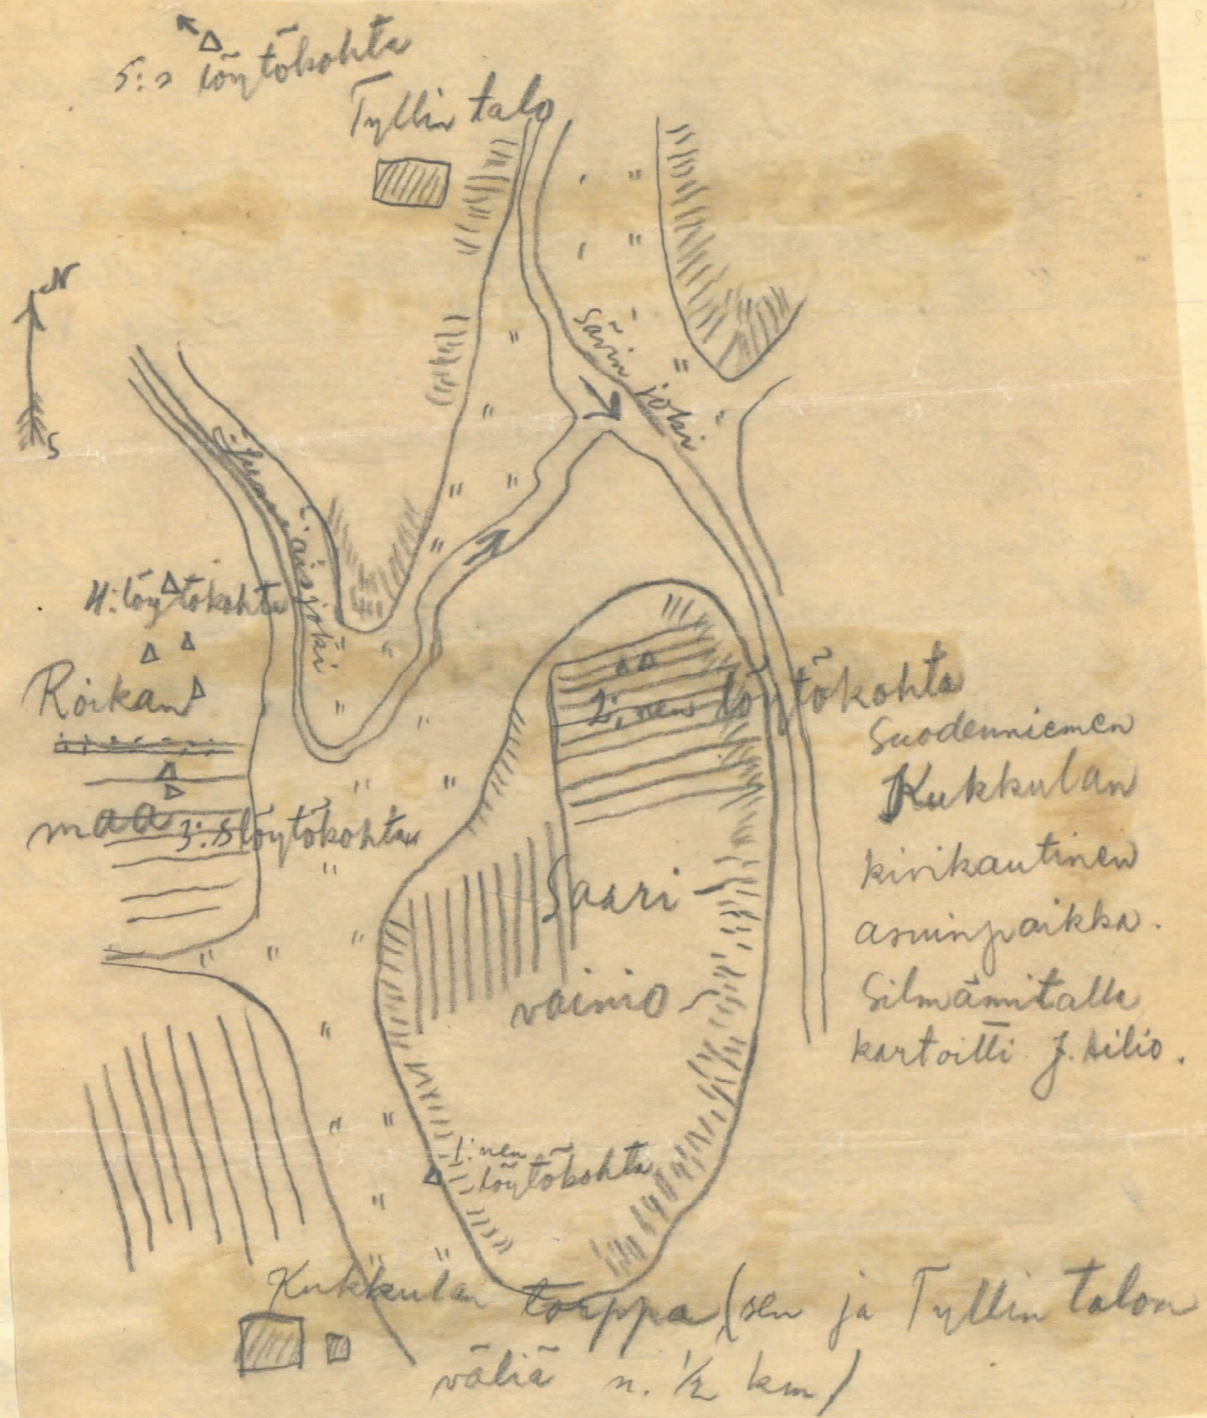 5:s löytökohta
Tyllin talo
N
S
Sävin joki
joki
4: löytökohta
Roikan
maa
3:s löytökohta
2:nen löytökohta
Saari-
vainio
Suodenniemen
Kukkulan
kivikautinen
asuinpaikka.
Silmämitalla
kartoitti J. Ailio.
1:nen
löytökohta
Kukkulan torppa (sen ja Tyllin talon
väliä n. ½ km)